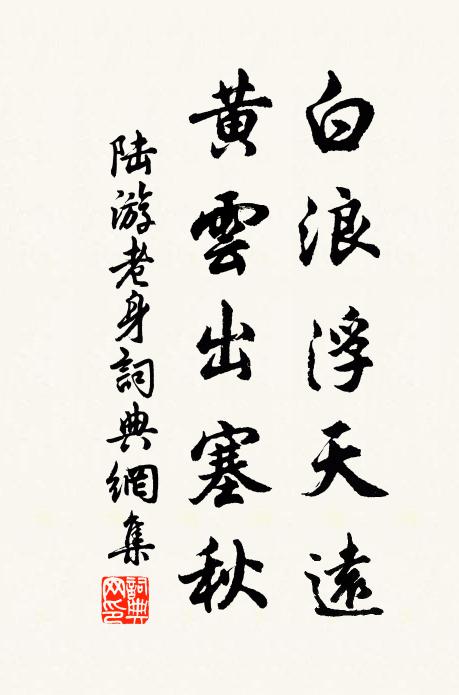 白浪浮天遠
黃雲出塞秋
陸游老身詞典網集
詞典网印